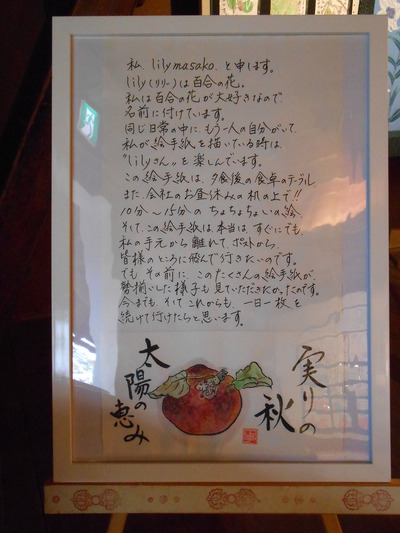 私、lily masako、と申します。
lily(リリー)は百合の花。
私は百合の花が大好きなので、
名前に付けています。
同じ日常の中に、もう一人の自分がいて、
私が絵手紙を描いている時は、
"lilyさん"を楽しんでいます。
この絵手紙は、夕食後の食卓のテーブル
また、会社のお昼休みの机の上で!!
10分〜15分のちょちょちょいの絵
そして、この絵手紙は、本当は、すぐにでも
私の手元から離れて、ポストから、
皆様のところに飛んで行きたいのです。
でも、その前に、このたくさんの絵手紙が、
勢揃いした様子も見ていただきたかったのです。
今までも、そして、これからも、一日一枚を
続けて行けたらと思います。
実りの
秋
太陽の恵み